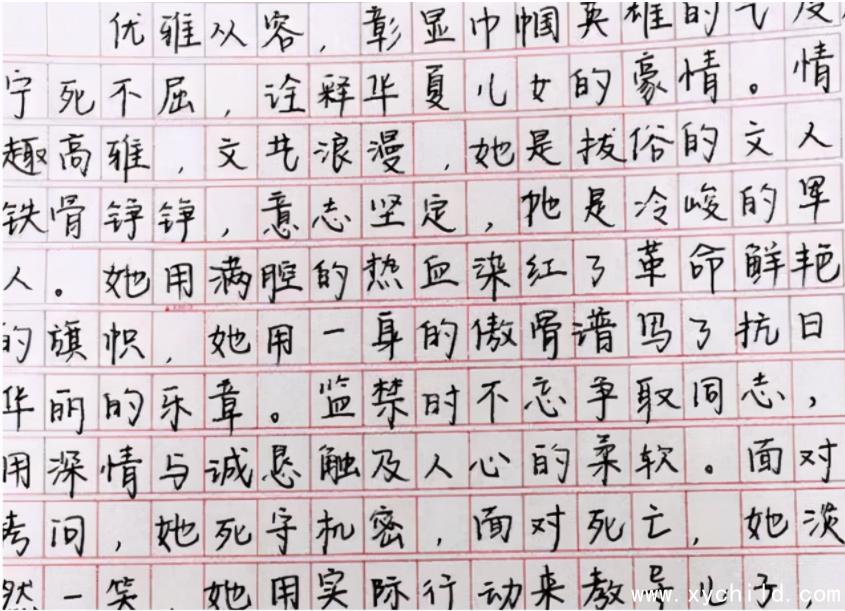 优雅从容，彰显巾帼英雄的气度
宁死不屈，诠释华夏儿女的豪情。情
趣高雅，文艺浪漫，她是拔俗的文人
铁骨铮铮，意志坚定，她是冷峻的军
人。她用满腔的热血染红了革命鲜艳
的旗帜，她用一身的傲骨谱写了抗日
华丽的乐章。监禁时不忘争取同志，
用深情与诚恳触及人心的柔软。面对
拷问，她死守机密，面对死亡，她淡
然一笑，她用实际行动来教导儿子
www.xychild.com